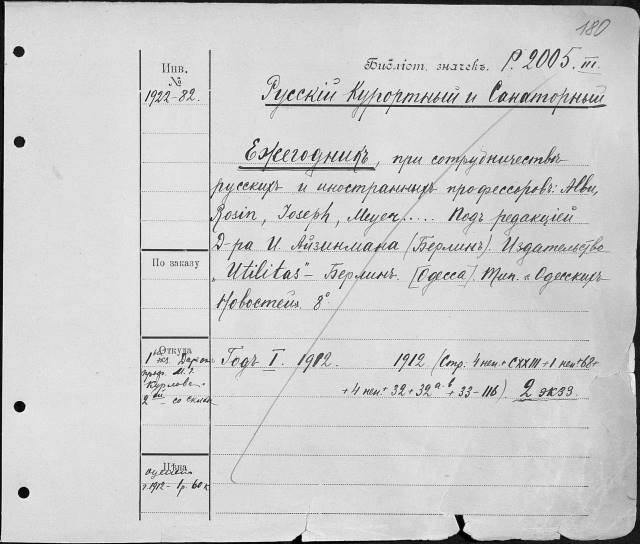 180
Инв.
№
1922-82.
Библіот. значекъ. P. 2005. III.
Русскій Курортный и Санаторный
Ежегодникъ, при сотрудничествѣ
русскихъ и иностранныхъ профессоровъ: Albu,
Rosin, Joseph, Meyer.... Подъ редакціей
Д-ра И. Айзинмана (Берлинъ). Издательство
По заказу
"Utilitas" - Берлинъ. (Одесса). Тип. "Одесскихъ
Новостей". 8°
Откуда
1ый экз. Даръ отъ
проф. М. Г.
Курлова
2ой - со склада
Годъ I. 1912.
1912 (Стр. 4 нен. + CXXIII + 1 нен. + 68 +
+ 4 нен. + 32 + 32 а-б + 33-116). 2 экз.
Цѣна
г. 1912 - 1 р. 60 к.